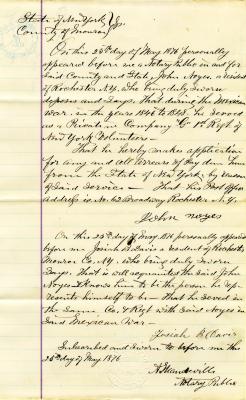 State of New York } ss.
County of Monroe
On this 25th day of May 1876 personally
appeared before me a Notary Public in and for
said County and State, John Noyes, a resident
of Rochester N.Y. who being duly sworn
deposes and says. That during the Mexican
war. in the years 1846 to 1848. he served
as a Private in Company "C" 1st Regt of
New York Volunteers.
That he hereby makes application
for any and all arrears of Pay due him
from the State of New York, by reason
of said service — That his Post Office
address is No. 62 Broadway Rochester N.Y.
John Noyes
On this 25th day of May 1876 appeared
before me Josiah B. Davis a resident of Rochester
Monroe Co. N.Y. who being duly sworn
says. That is well acquainted the said John
Noyes & knows him to be the person he rep-
resents himself to be — That he served in
the same Co. & Regt with said Noyes in
said Mexican War —
Josiah B. Davis
Subscribed and sworn to before me this
25th day of May 1876
Notary Public